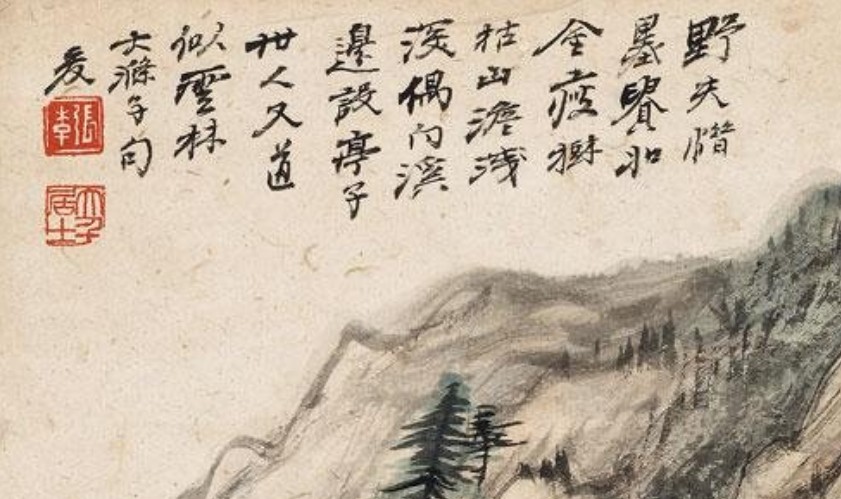 野夫惜
墨實如
金瘦樹
枯山澹淺
深偶向溪
邊設亭子
世人又道
似雲林
大滌子句
爰
張爰
大千居士